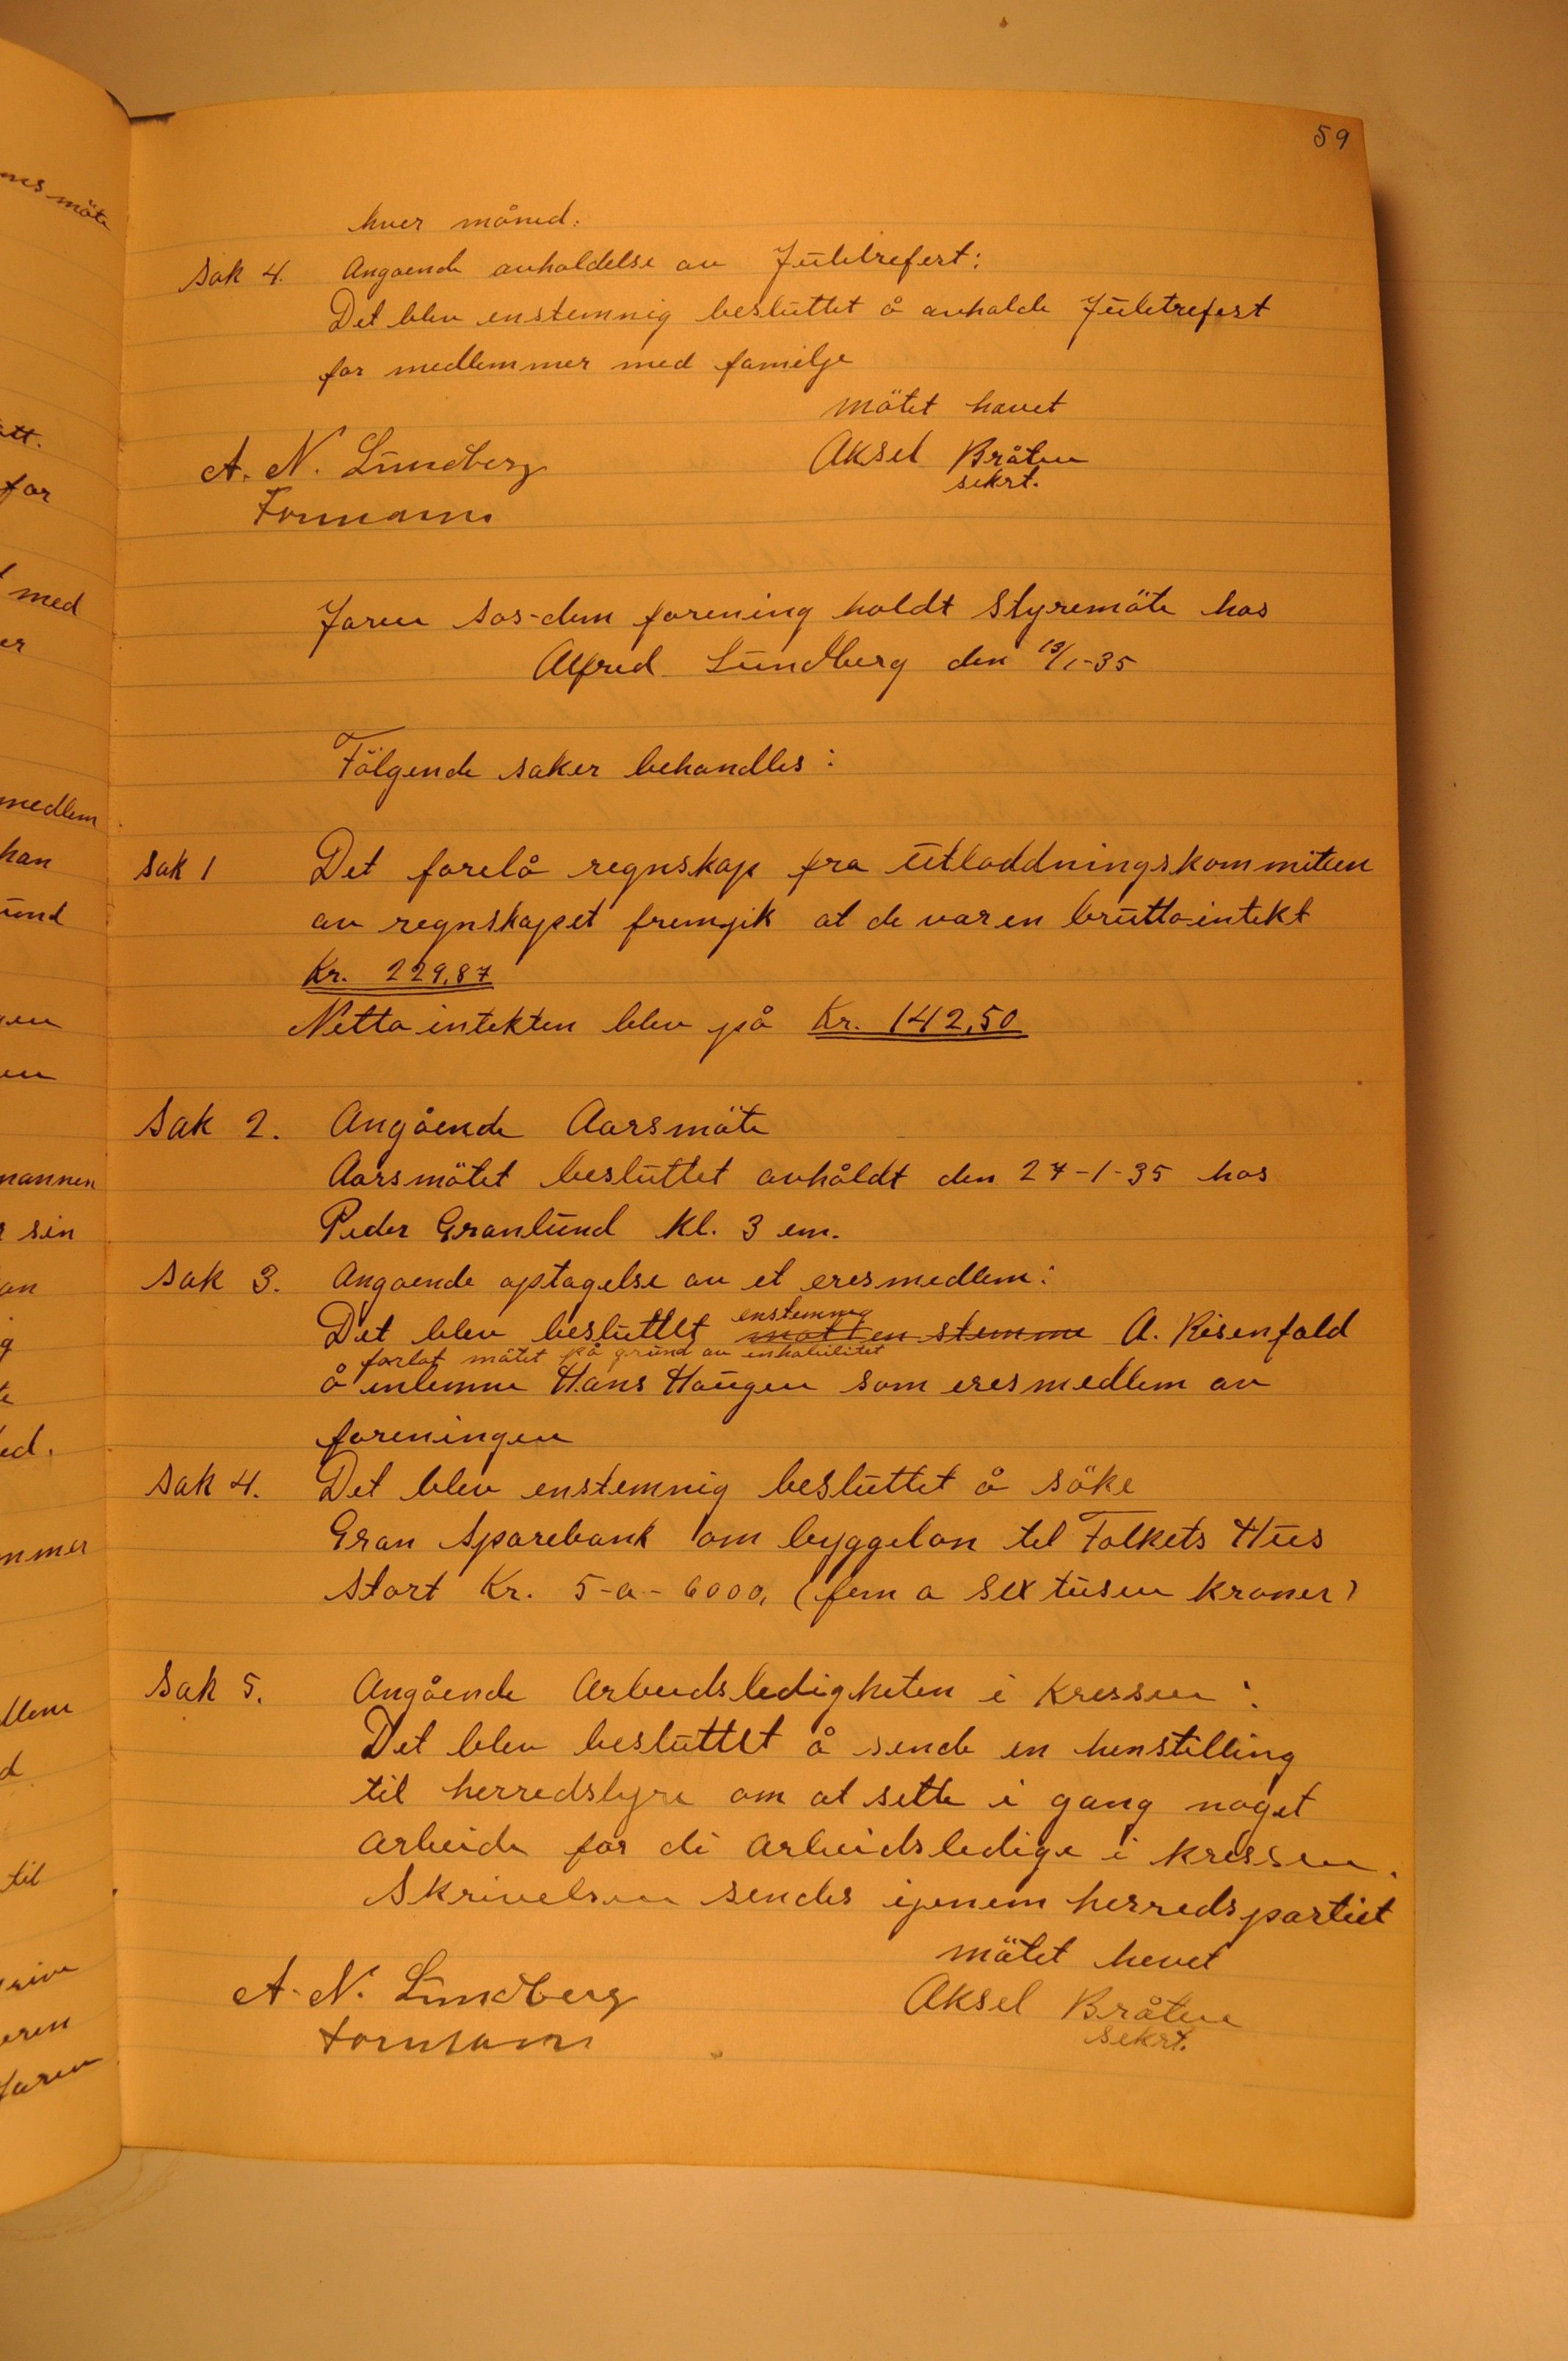 59
hver måned.
Sak 4. Angaende avholdelse av Juletrefest:
Det blev enstemnig besluttet å avholde Juletrefest
for medlemmer med familje
mötet hevet
A. N. Lundberg Aksel Bråten
sekrt.
Formann
Jaren sos-dem forening holdt Styremöte hos
Alfred Lundberg den 13/1-35
Fölgende saker behandles:
Sak 1 Det forelå regnskap fra Utloddningskommiteen
av regnskapet fremgik at de var en brutto intekt
Kr. 229,87
Netto intekten blev på Kr. 142,50
Sak 2. Angående Aarsmöte
Aarsmötet besluttet avhåldt den 27-1-35 hos
Peder Granlund Kl. 3 em.
Sak 3. Angaende optagelse av et eresmedlem:
enstemnig
Det blev besluttet mott en stemme A. Risenfald
forlot mötet på grund av inhabilitet
å inlemme Hans Haugen som eresmedlem av
foreningen
Sak 4. Det blev enstemnig besluttet å söke
Gran Sparebank om byggelon til Folkets Hus
stort Kr. 5-a-6000, (fem a sex tusen kroner)
Sak 5. Angående Arbeidsledigheten i Kressen:
Det blev besluttet å sende en henstilling
til herredstyre om at sette i gang noget
Arbeide for di Arbeidsledige i kressen.
Skrivelsen sendes ijenem herredspartiet
mötet hevet
A. N. Lundberg Aksel Bråten
formann sekrt.